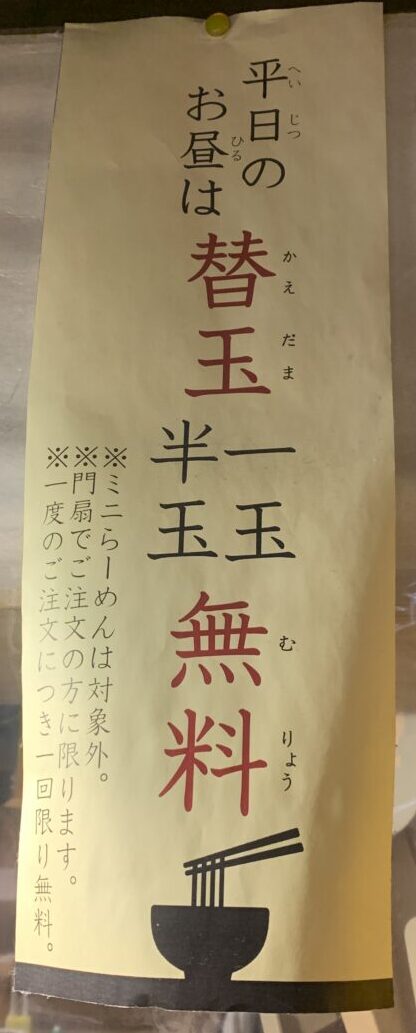 平日の
お昼は
替玉
一玉
半玉
無料
※ミニらーめんは対象外。
※門扇でご注文の方に限ります。
※一度のご注文につき一回限り無料。
へい
じつ
ひる
かえ
だま
む
りょう